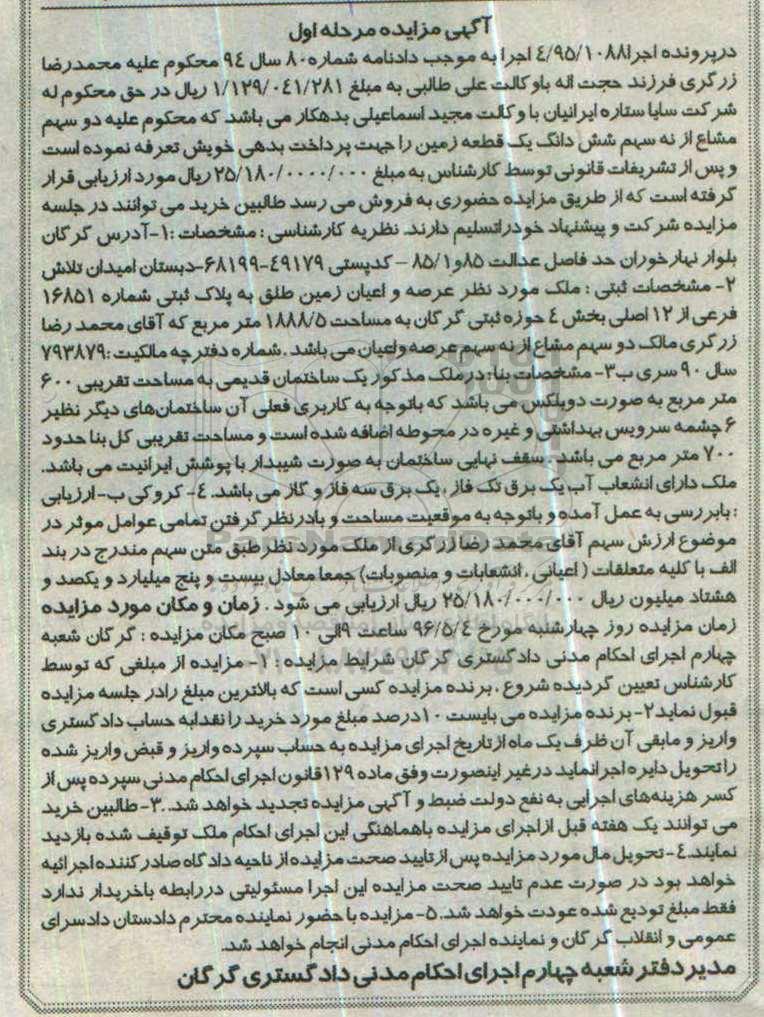 آگهی مزایده مرحله اول
درپرونده اجرا۴/۹۵/۱۰۸۸ اجرا به موجب دادنامه شماره۸۰ سال ۹۴ محکوم علیه محمدرضا
زرگری فرزند حجت اله باوکالت علی طالبی به مبلغ ۱/۱۲۹/۰۴۱/۲۸۱ ریال در حق محکوم له
شرکت سایا ستاره ایرانیان با وکالت مجید اسماعیلی بدهکار می باشد که محکوم علیه دو سهم
مشاع از نه سهم شش دانگ یک قطعه زمین را جهت پرداخت بدهی خویش تعرفه نموده است
و پس از تشریفات قانونی توسط کارشناس به مبلغ ۲۵/۱۸۰/۰۰۰۰/۰۰۰ ریال مورد ارزیابی قرار
گرفته است که از طریق مزایده حضوری به فروش می رسد طالبین خرید می توانند در جلسه
مزایده شرکت و پیشنهاد خودراتسلیم دارند. نظریه کارشناسی : مشخصات :۱-آدرس گرگان
بلوار نهارخوران حد فاصل عدالت ۸۵و۸۵/۱ – کدپستی ۴۹۱۷۹-۶۸۱۹۹-دبستان امیدان تلاش
۲- مشخصات ثبتی : ملک مورد نظر عرصه و اعیان زمین طلق به پلاک ثبتی شماره ۱۶۸۵۱
فرعی از ۱۲ اصلی بخش ۴ حوزه ثبتی گرگان به مساحت ۱۸۸۸/۵ متر مربع که آقای محمد رضا
زرگری مالک دو سهم مشاع از نه سهم عرصه واعیان می باشد .شماره دفترچه مالکیت :۷۹۳۸۷۹
سال ۹۰ سری ب۳- مشخصات بنا: در ملک مذکور یک ساختمان قدیمی به مساحت تقریبی ۶۰۰
متر مربع به صورت دوبلکس می باشد که باتوجه به کاربری فعلی آن ساختمان‌های دیگر نظیر
۶ چشمه سرویس بهداشتی و غیره در محوطه اضافه شده است و مساحت تقریبی کل بنا حدود
۷۰۰ متر مربع می باشد . سقف نهایی ساختمان به صورت شیبدار با پوشش ایرانیت می باشد.
ملک دارای انشعاب آب یک برق تک فاز ، یک برق سه فاز و گاز می باشد. ۴- کروکی ب-ارزیابی
: بابررسی به عمل آمده و باتوجه به موقعیت مساحت و بادرنظر گرفتن تمامی عوامل موثر در
موضوع ارزش سهم آقای محمد رضا زرگری از ملک مورد نظر طبق متن سهم مندرج در بند
الف با کلیه متعلقات ( اعیانی ، انشعابات و منصوبات) جمعا معادل بیست و پنج میلیارد و یکصد و
هشتاد میلیون ریال ۲۵/۱۸۰/۰۰۰/۰۰۰ ریال ارزیابی می شود . زمان و مکان مورد مزایده
زمان مزایده روز چهارشنبه مورخ ۹۶/۵/۴ ساعت ۹الی ۱۰ صبح مکان مزایده : گرگان شعبه
چهارم اجرای احکام مدنی دادگستری گرگان شرایط مزایده : ۱- مزایده از مبلغی که توسط
کارشناس تعیین گردیده شروع ، برنده مزایده کسی است که بالاترین مبلغ رادر جلسه مزایده
قبول نماید۲- برنده مزایده می بایست ۱۰درصد مبلغ مورد خرید را نقدابه حساب دادگستری
واریز و مابقی آن ظرف یک ماه ازتاریخ اجرای مزایده به حساب سپرده واریز و قبض واریز شده
راتحویل دایره اجرانماید درغیر اینصورت وفق ماده ۱۲۹قانون اجرای احکام مدنی سپرده پس از
کسر هزینه‌های اجرایی به نفع دولت ضبط و آگهی مزایده تجدید خواهد شد. .۳- طالبین خرید
می توانند یک هفته قبل ازاجرای مزایده باهماهنگی این اجرای احکام ملک توقیف شده بازدید
نمایند.۴- تحویل مال مورد مزایده پس ازتایید صحت مزایده از ناحیه دادگاه صادرکننده اجرائیه
خواهد بود در صورت عدم تایید صحت مزایده این اجرا مسئولیتی دررابطه باخریدار ندارد
فقط مبلغ تودیع شده عودت خواهد شد. ۵- مزایده با حضور نماینده محترم دادستان دادسرای
عمومی و انقلاب گرگان و نماینده اجرای احکام مدنی انجام خواهد شد.
مدیر دفتر شعبه چهارم اجرای احکام مدنی دادگستری گرگان